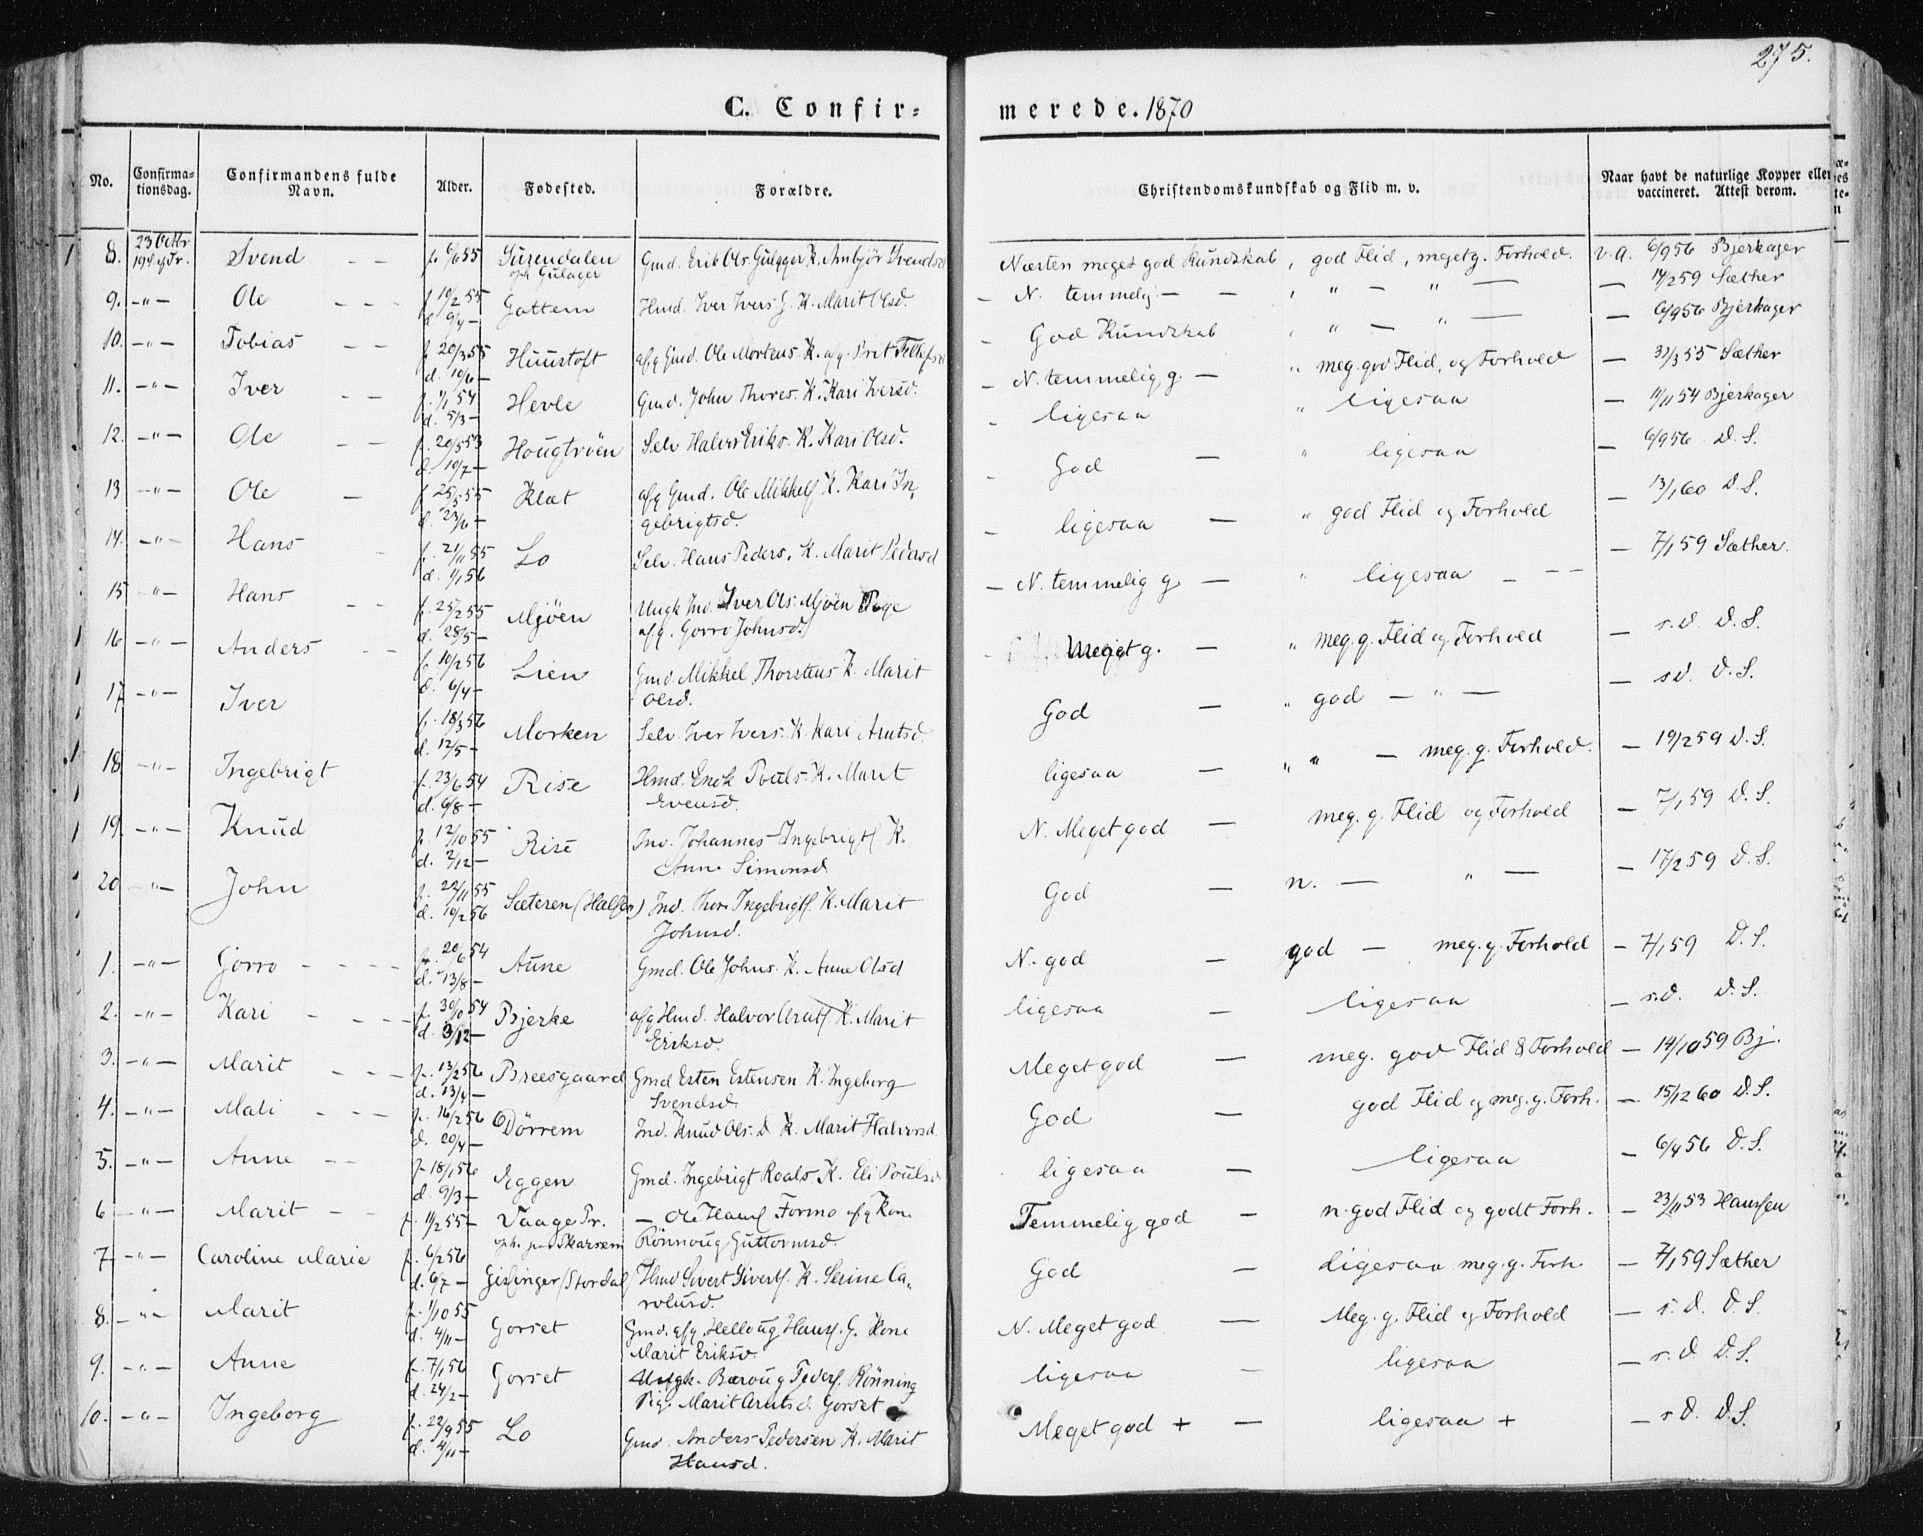 275.
C. Confir- merede. 1870
No.
Confirma-
tionsdag.
Confirmandens fulde
Navn.
Alder.
Fødested.
Forældre.
Christendomskundskab og Flid m. v.
Naar havt de naturlige Kopper eller
vaccineret. Attest derom.
8. 23 Octbr Svend f. 6/6 55 Surendalen Gmd. Erik Ols. Gulager K. Anbjør Svendsd Næsten meget god Kundskab, god Flid, meget g. Forhold. v. a. 6/9 56 Bjerkager
19 S. e. Tr. oph. Gulager
9. -"- Ole f. 19/2 55 Gottem Hmd. Iver Ivers. G. K. Marit Olsd. N. temmelig — — " — " — — 14/2 59 Sæther
d. 9/4 —
10. -"- Tobias f. 20/3 55 Huustoft afg. Gmd. Ole Mortens. K. afg. Brit Tollefsd God Kundskab " — " — — 6/9 56 Bjerkager
d. 10/6 —
11. -"- Iver f. 1/1 54 Hevle Gmd. John Thores. K. Kari Iversd. N. temmelig g. — " meg. god Flid, og Forhold — 31/3 55 Sæther
d. 5/3 —
12. -"- Ole f. 20/5 53 Hougtrøen Selv. Halvor Eriks. K. Kari Olsd. ligesaa " ligesaa — 11/11 54 Bjerkager
d. 10/7 —
13 -"- Ole f. 25/5 55 Klæt afg. Gmd. Ole Mikkels. K. Kari In- God — " ligesaa — 6/9 56 D. S.
d. 23/6 — gebrigtsd.
14. -"- Hans f. 21/11 55 Lo Selv. Hans Peders. K. Marit Pedersd ligesaa — " god Flid og Forhold — 13/1 60 D. S.
d. 1/1 56
15 -"- Hans f. 25/2 55 Mjøen Ungk. Ind. Iver Ols. Mjøen Pige N. temmelig g. — " ligesaa — — 7/1 59 Sæther.
d. 28/5 — afg. Gorro Johnsd.
16 -"- Anders f. 10/2 56 Lien Gmd. Mikkel Thorstens. K. Marit Meget g. — " meg. g. Flid og Forhold — s. d. D. S.
d. 6/4 — Olsd.
17 -"- Iver f. 18/3 56 Morken Selv. Iver Ivers. K. Kari Arntsd. God — " god — " — — s d. D. S.
d. 12/5 —
18 -"- Ingebrigt f. 23/6 54 Rise Hmd. Erik Pouls. K. Marit ligesaa — " " — meg. g. Forhold. — 19/2 59 D. S.
d. 6/8 — Evensd.
19 -"- Knud f. 12/10 55 Rise Ind. Johannes Ingebrigts. K. N. Meget god — meg. g. Flid og Forhold — 7/1 59 D. S.
d. 2/12 — Anne Simonsd.
20 -"- John f. 22/11 55 Sæteren Ind. Thore Ingebrigts. K. Marit God — n. — " — — 17/2 59 D. S.
d. 10/2 56 Johnsd.
1. -"- Gorro f. 20/6 54 Aune Gmd. Ole Johns. K. Anne Olsd N. god — god — meg. g. Forhold — 7/1 59 D. S.
d. 13/8 —
2. -"- Kari f. 30/10 54 Bjerke afg. Hmd. Halvor Arnts. K. Marit ligesaa — ligesaa — s. d. D. S.
d. 3/12 — Eriksd.
3. -"- Marit f. 13/2 56 Breesgaard Gmd Esten Estensen K. Ingeborg Meget god — meg. god Flid & Forhold — 14/10 59 Bj.
d. 13/4 — Svendsd.
4. -"- Mali f. 16/2 56 Dørrem Ind. Knud Ols. D. K. Marit Halvorsd. God — god Flid og meg. g. Forh. — 15/12 60 D. S.
d. 20/4 —
5. -"- Anne f. 18/1 56 Eggen Gmd. Ingebrigt Roals. K. Eli Poulsd ligesaa — ligesaa — 6/4 56 D. S.
d. 9/3 —
6 -"- Marit f. 11/2 55 — Vaage Pr. — Ole Hans. Formo afg. Kone Temmelig god — n. god Flid og godt Forh. — 23/11 53 Hanssen
oph. paa Skarsem Rønnoug Guttormsd.
7 -"- Caroline Marie f. 6/2 56 Gislinger (Stordal) Hmd Sivert Siverts. K. Serine Ca- God — Ligesaa meg. g. Forh. — 7/1 59 Sæther
d. 6/7 — rolusd.
8. -"- Marit f. 1/10 55 Gorset Gmd. afg. Helloug Hans. G. Kone N. Meget god — Meg. g. Flid og Forhold — s. d. D. S.
d. 4/11 — Marit Eriksd.
9. -"- Anne f. 7/1 56 Gorset Ungk. Baroug Peders. Rønning ligesaa — ligesaa — s. d D. S.
d. 24/2 — Pig. Marit Arntsd. Gorset
10. -"- Ingeborg f. 22/9 55 Lo Gmd. Anders Pedersen K. Marit Meget god + — ligesaa + — s d. D. S.
d. 4/11 — Hansd.